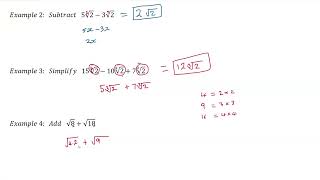 Example 2: Subtract 5∛2 − 3∛2 = 2∛2
5x − 3x
2x
Example 3: Simplify 15∛2 − 10∛2 + 7∛2 = 12∛2
5∛2 + 7∛2
4 = 2 × 2
9 = 3 × 3
16 = 4 × 4
Example 4: Add √8 + √18